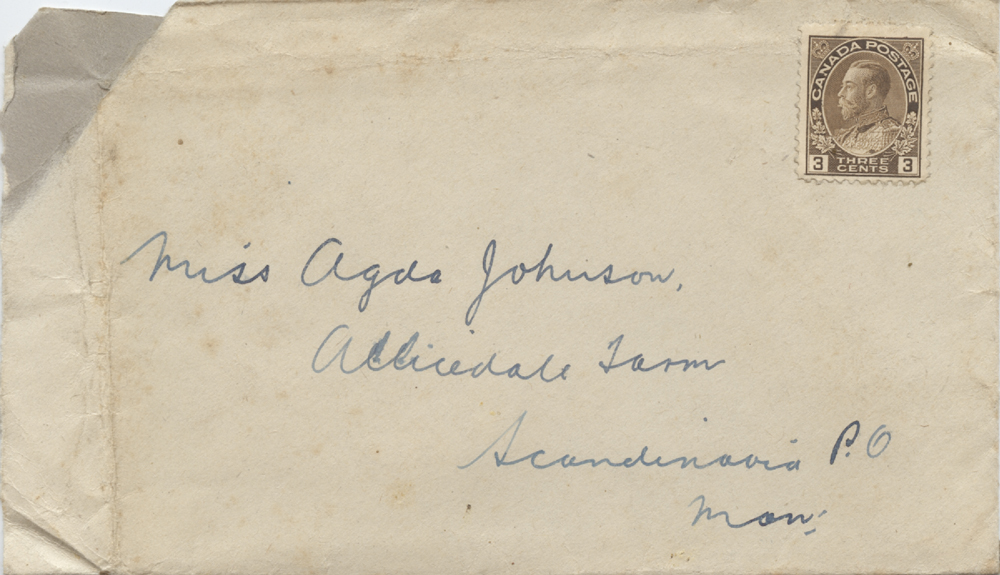 CANADA POSTAGE
3 THREE CENTS 3
Miss Agda Johnson,
Allicedale Farm
Scandinavia P.O
Man: